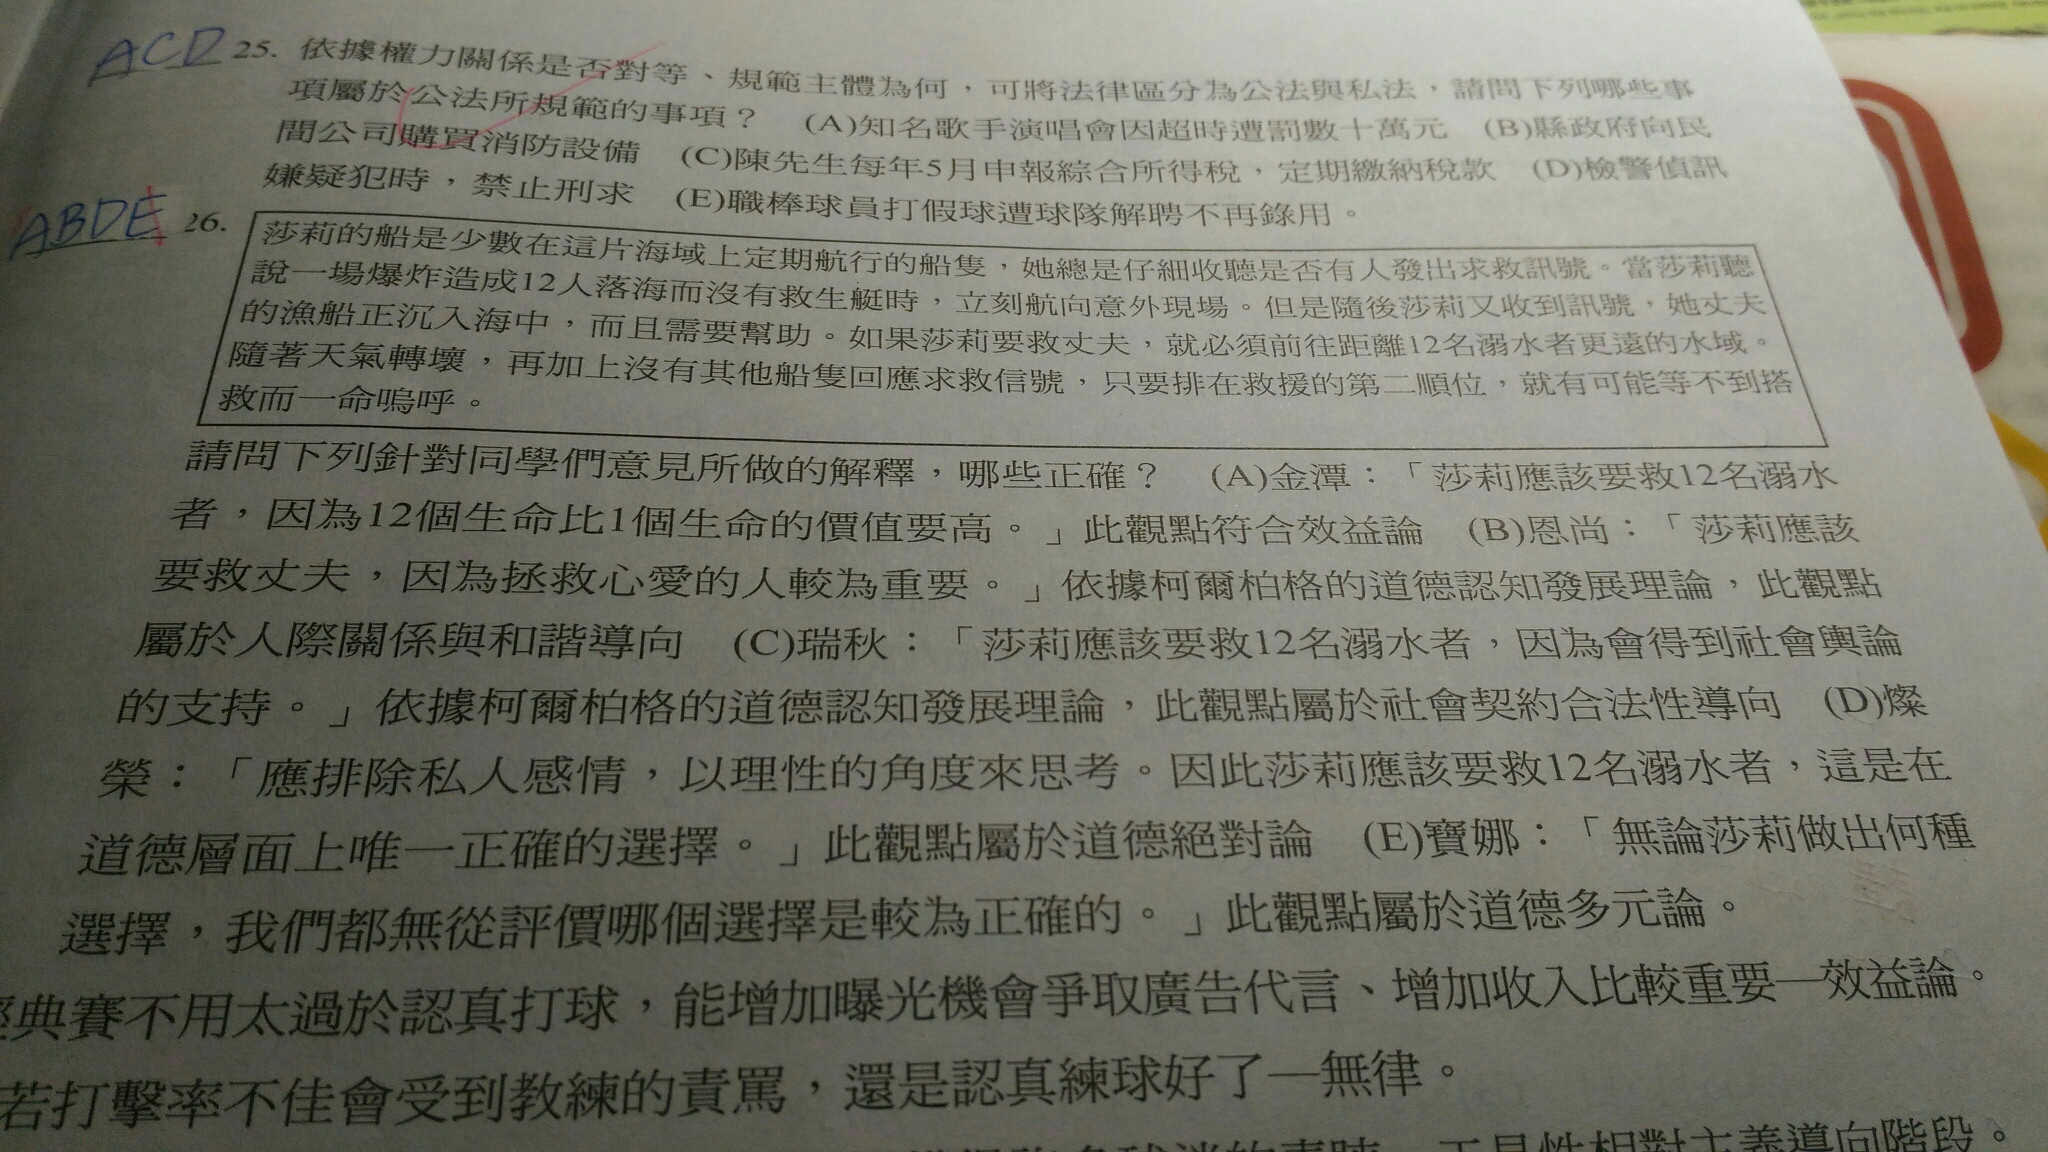 ACD 25. 依據權力關係是否對等、規範主體為何，可將法律區分為公法與私法，請問下列哪些事
項屬於公法所規範的事項？ (A)知名歌手演唱會因超時遭罰數十萬元 (B)縣政府向民
間公司購買消防設備 (C)陳先生每年5月申報綜合所得稅，定期繳納稅款 (D)檢警偵訊
嫌疑犯時，禁止刑求 (E)職棒球員打假球遭球隊解聘不再錄用。
ABDE 26.
莎莉的船是少數在這片海域上定期航行的船隻，她總是仔細收聽是否有人發出求救訊號。當莎莉聽
說一場爆炸造成12人落海而沒有救生艇時，立刻航向意外現場。但是隨後莎莉又收到訊號，她丈夫
的漁船正沉入海中，而且需要幫助。如果莎莉要救丈夫，就必須前往距離12名溺水者更遠的水域。
隨著天氣轉壞，再加上沒有其他船隻回應求救信號，只要排在救援的第二順位，就有可能等不到搭
救而一命嗚呼。
請問下列針對同學們意見所做的解釋，哪些正確？ (A)金潭：「莎莉應該要救12名溺水
者，因為12個生命比1個生命的價值要高。」此觀點符合效益論 (B)恩尚：「莎莉應該
要救丈夫，因為拯救心愛的人較為重要。」依據柯爾柏格的道德認知發展理論，此觀點
屬於人際關係與和諧導向 (C)瑞秋：「莎莉應該要救12名溺水者，因為會得到社會輿論
的支持。」依據柯爾柏格的道德認知發展理論，此觀點屬於社會契約合法性導向 (D)燦
榮：「應排除私人感情，以理性的角度來思考。因此莎莉應該要救12名溺水者，這是在
道德層面上唯一正確的選擇。」此觀點屬於道德絕對論 (E)寶娜：「無論莎莉做出何種
選擇，我們都無從評價哪個選擇是較為正確的。」此觀點屬於道德多元論。
典賽不用太過於認真打球，能增加曝光機會爭取廣告代言、增加收入比較重要—效益論。
若打擊率不佳會受到教練的責罵，還是認真練球好了—無律。
相對主義導向階段。